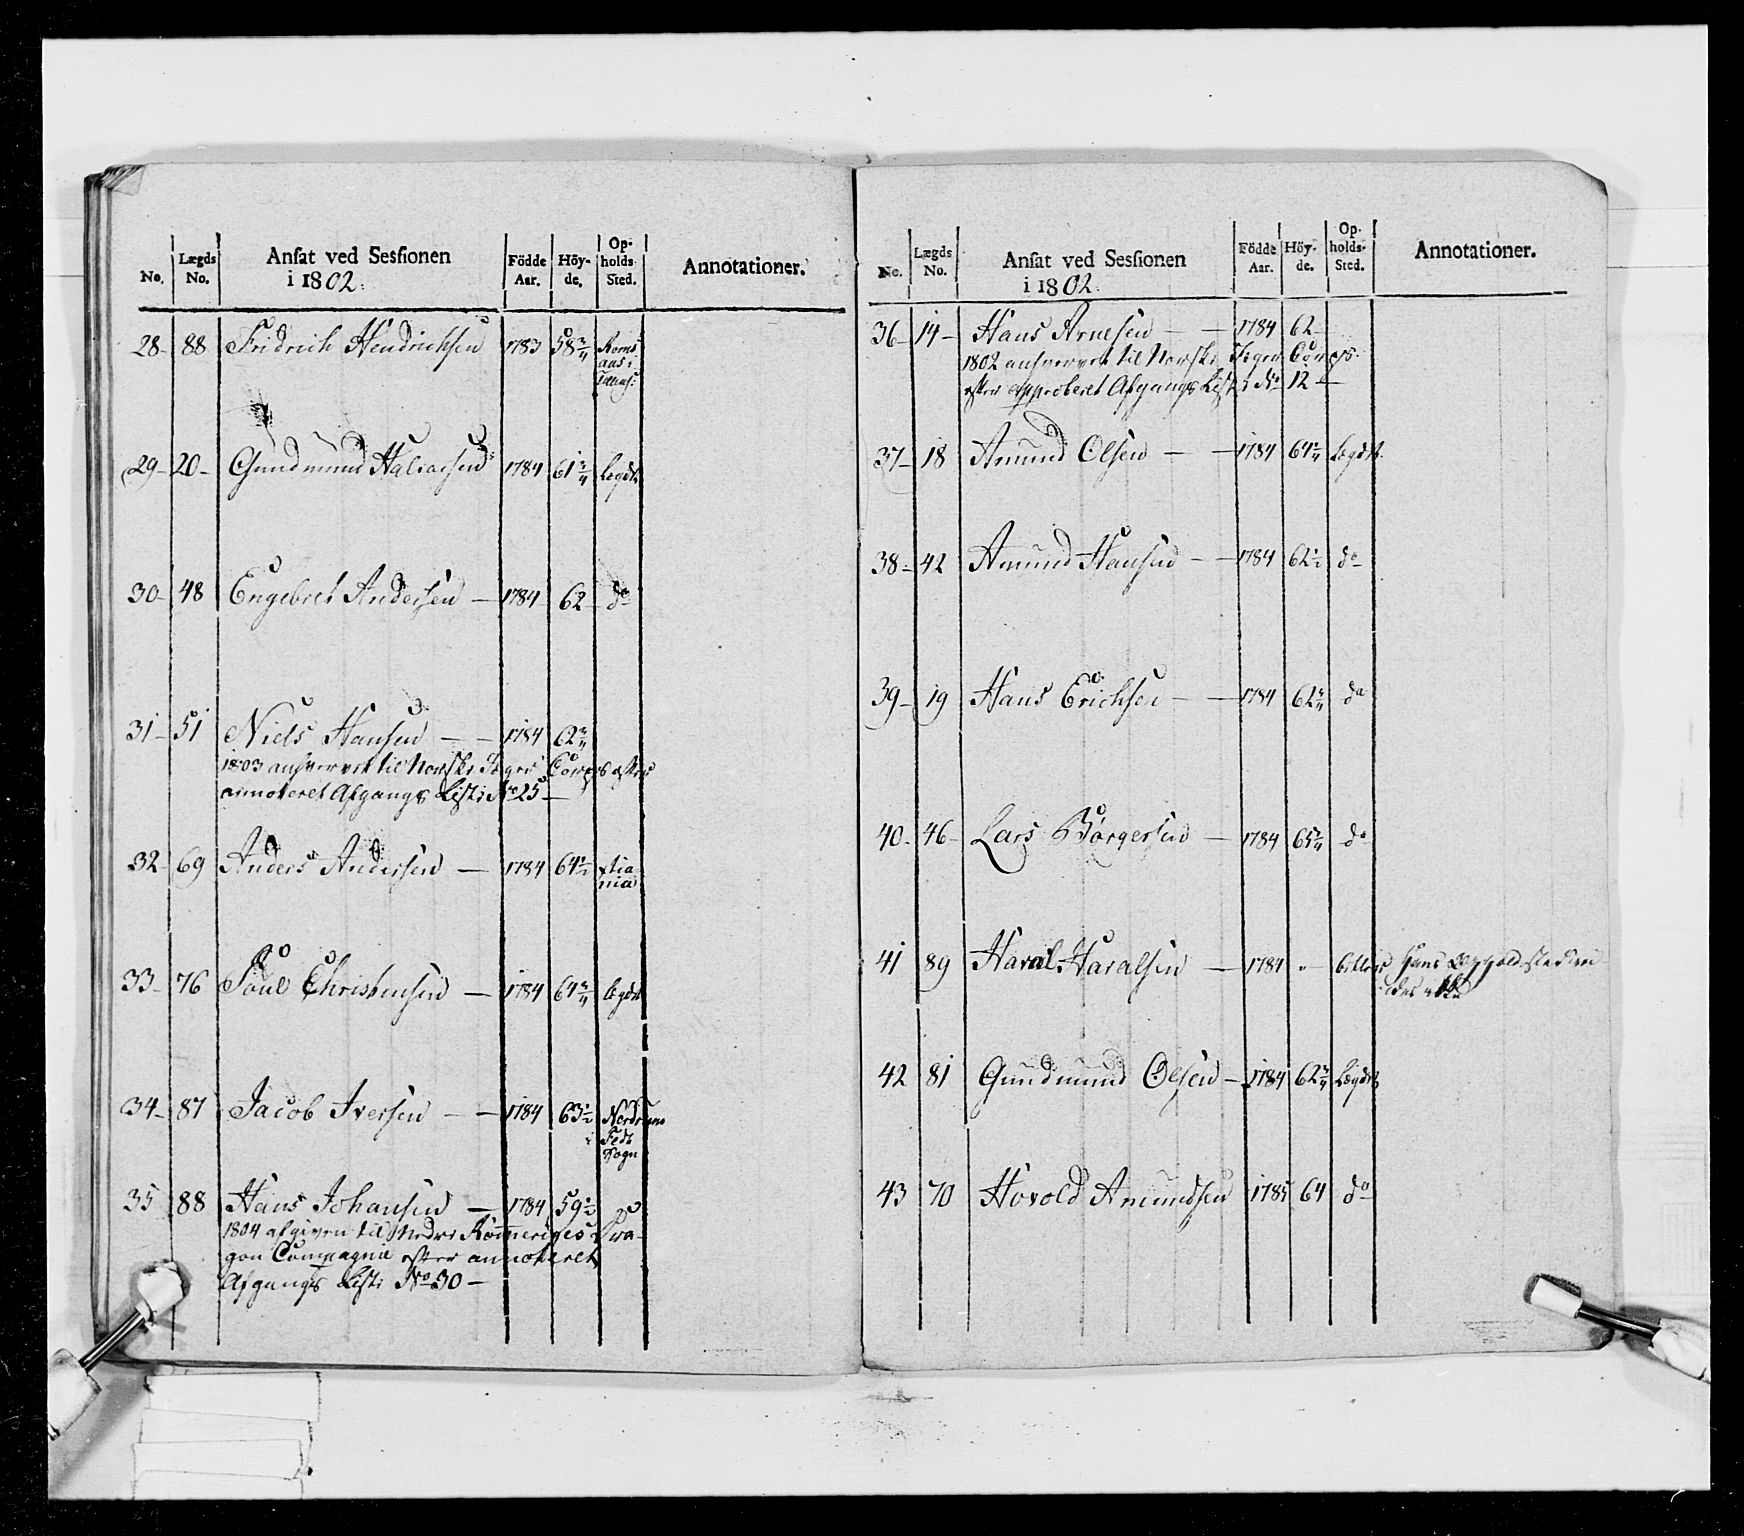 No. | Lægds No. | Ansat ved Sessionen i 1802. | Födde Aar. | Höy-de. | Op-holds-Sted. | Annotationer.
28 - 88 Fridrich Hendrichsen 1783 58 3/4
29 - 20 - Gundmund Halvorsen 1784 61 3/4 Legdet
30 - 48 Engebret Andersen — 1784 62 - do
31 - 51 Niels Hansen — - 1784 62 3/4
1803 anhvervet til Norske Jæger Corps efter
annoteret Afgangs Liste No 25 -
32 - 69 Anders Andersen — 1784 64 1/2 xtia
nia
33 - 76 Poul Christensen — 1784 64 3/4 legdet
34 - 87 Jacob Iversen — — 1784 63 1/2
Sogn
35 88 Hans Johansen — 1784 59 1/2 do
1804 afgiven til Nedre Rommeriges Dra-
gon Compagnie efter annoteret
Afgangs Liste No 30 -
No. | Lægds No. | Ansat ved Sessionen i 1802. | Födde Aar. | Höy-de. | Op-holds-Sted. | Annotationer.
36 - 14 - Hans Arnesen — — 1784 62 -
1802 anhvervet til Norske Jæger Corps
efter approberet Afgangs Liste No 12 -
37 - 18 Amund Olsen — — 1784 64 1/4 Legdet
38 - 42 Amund Hansen — — 1784 62 1/2 do
39 - 19 Hans Erichsen — — 1784 62 3/4 do
40 - 46 - Lars Börgersen — 1784 65 3/4 do
41 89 Haral Haralsen — 1784 " Hans
42 81 Gundmund Olsen - 1784 62 3/4 Legdet
43 70 Hovold Amundsen 1785 64 do